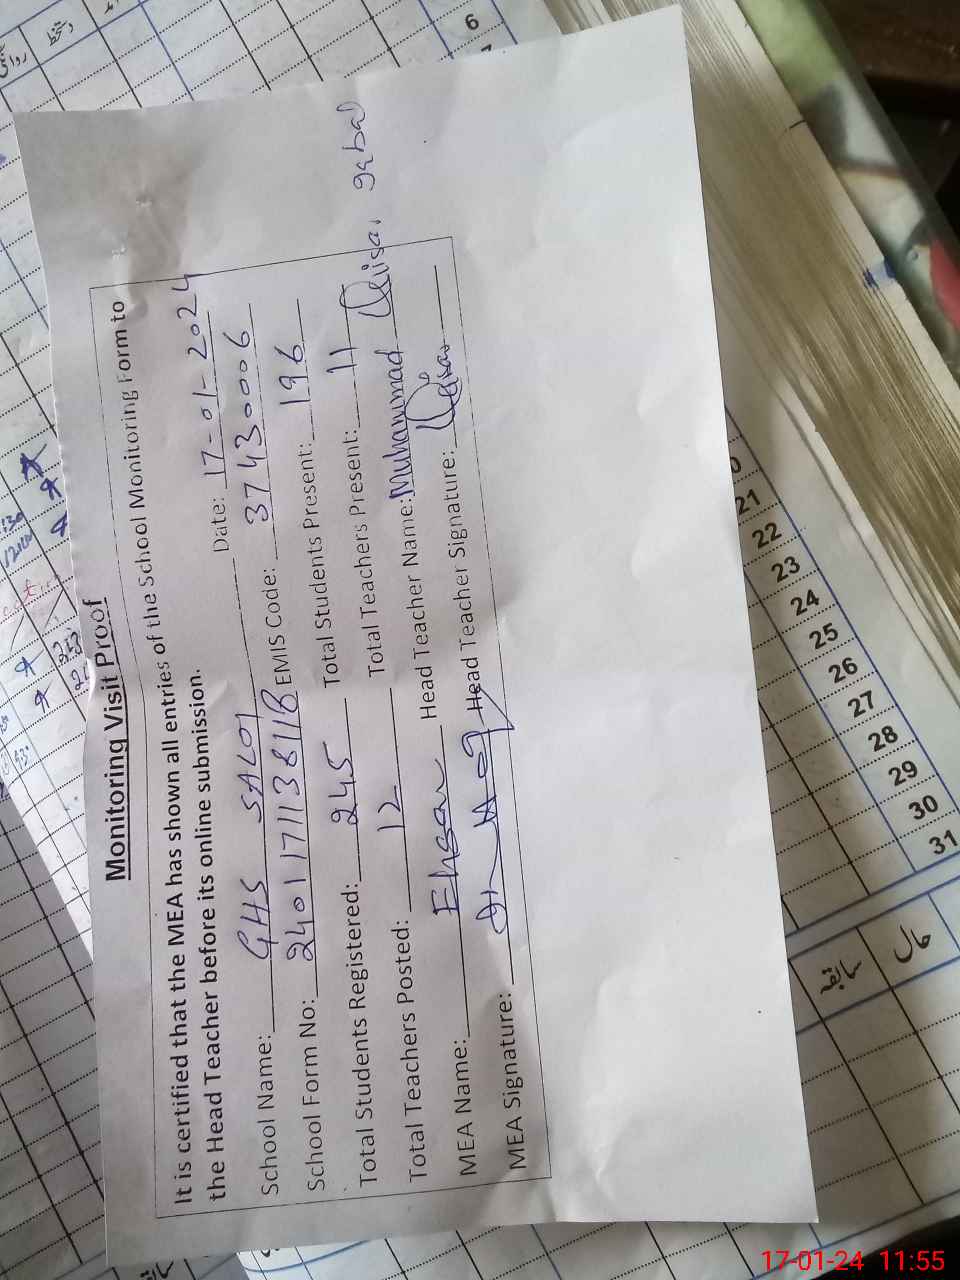 Monitoring Visit Proof
It is certified that the MEA has shown all entries of the School Monitoring Form to
the Head Teacher before its online submission.
School Name: GHS SALOI Date: 17-01-2024
School Form No: 24011711381B EMIS Code: 37430006
Total Students Registered: 245 Total Students Present: 196
Total Teachers Posted: 12 Total Teachers Present: 11
MEA Name: Ehsan Head Teacher Name: Muhammad Qaisar iqbal
MEA Signature: Head Teacher Signature: Qaisar
6
21
22
23
24
25
26
27
28
29
30
31
سابقہ
حال
دستخط
17-01-24 11:55